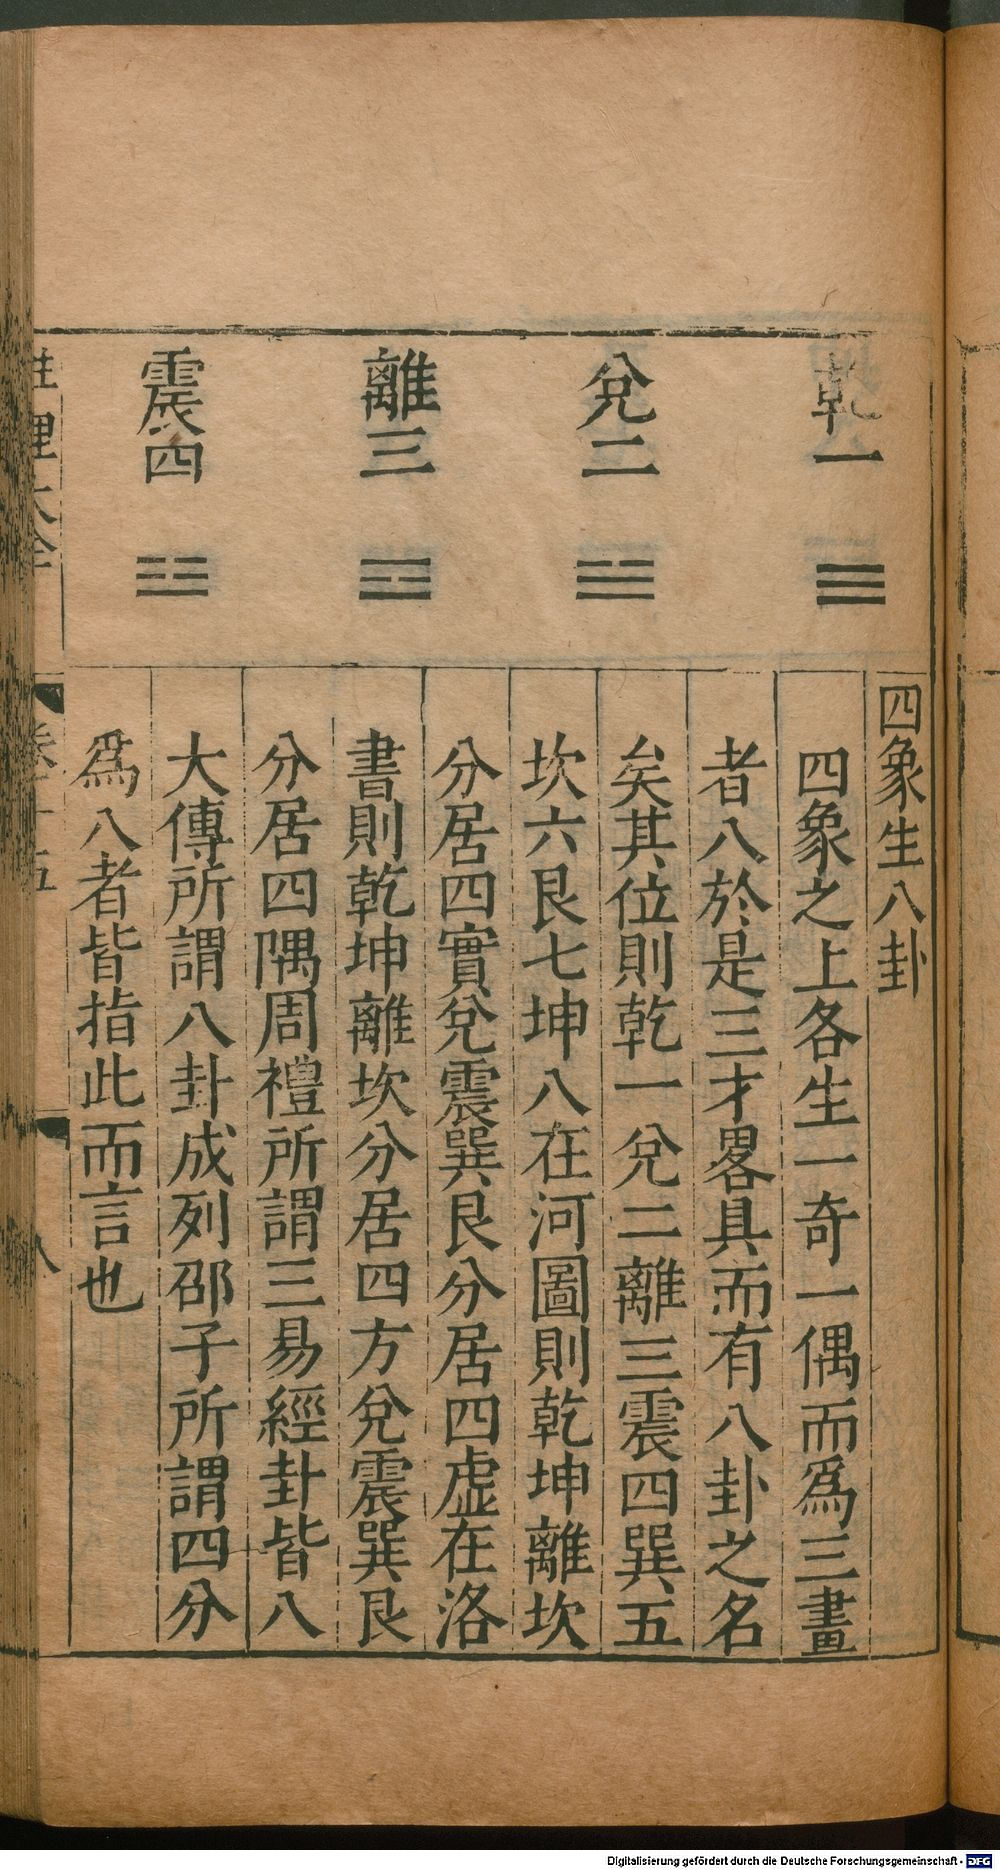 乾一 ☰
兌二 ☱
離三 ☲
震四 ☳
四象生八卦
四象之上各生一奇一偶而爲三畫
者八於是三才畧具而有八卦之名
矣其位則乾一兌二離三震四巽五
坎六艮七坤八在河圖則乾坤離坎
分居四實兌震巽艮分居四虛在洛
書則乾坤離坎分居四方兌震巽艮
分居四隅周禮所謂三易經卦皆八
大傳所謂八卦成列邵子所謂四分
爲八者皆指此而言也
性理大全
八
Digitalisierung gefördert durch die Deutsche Forschungsgemeinschaft - DFG